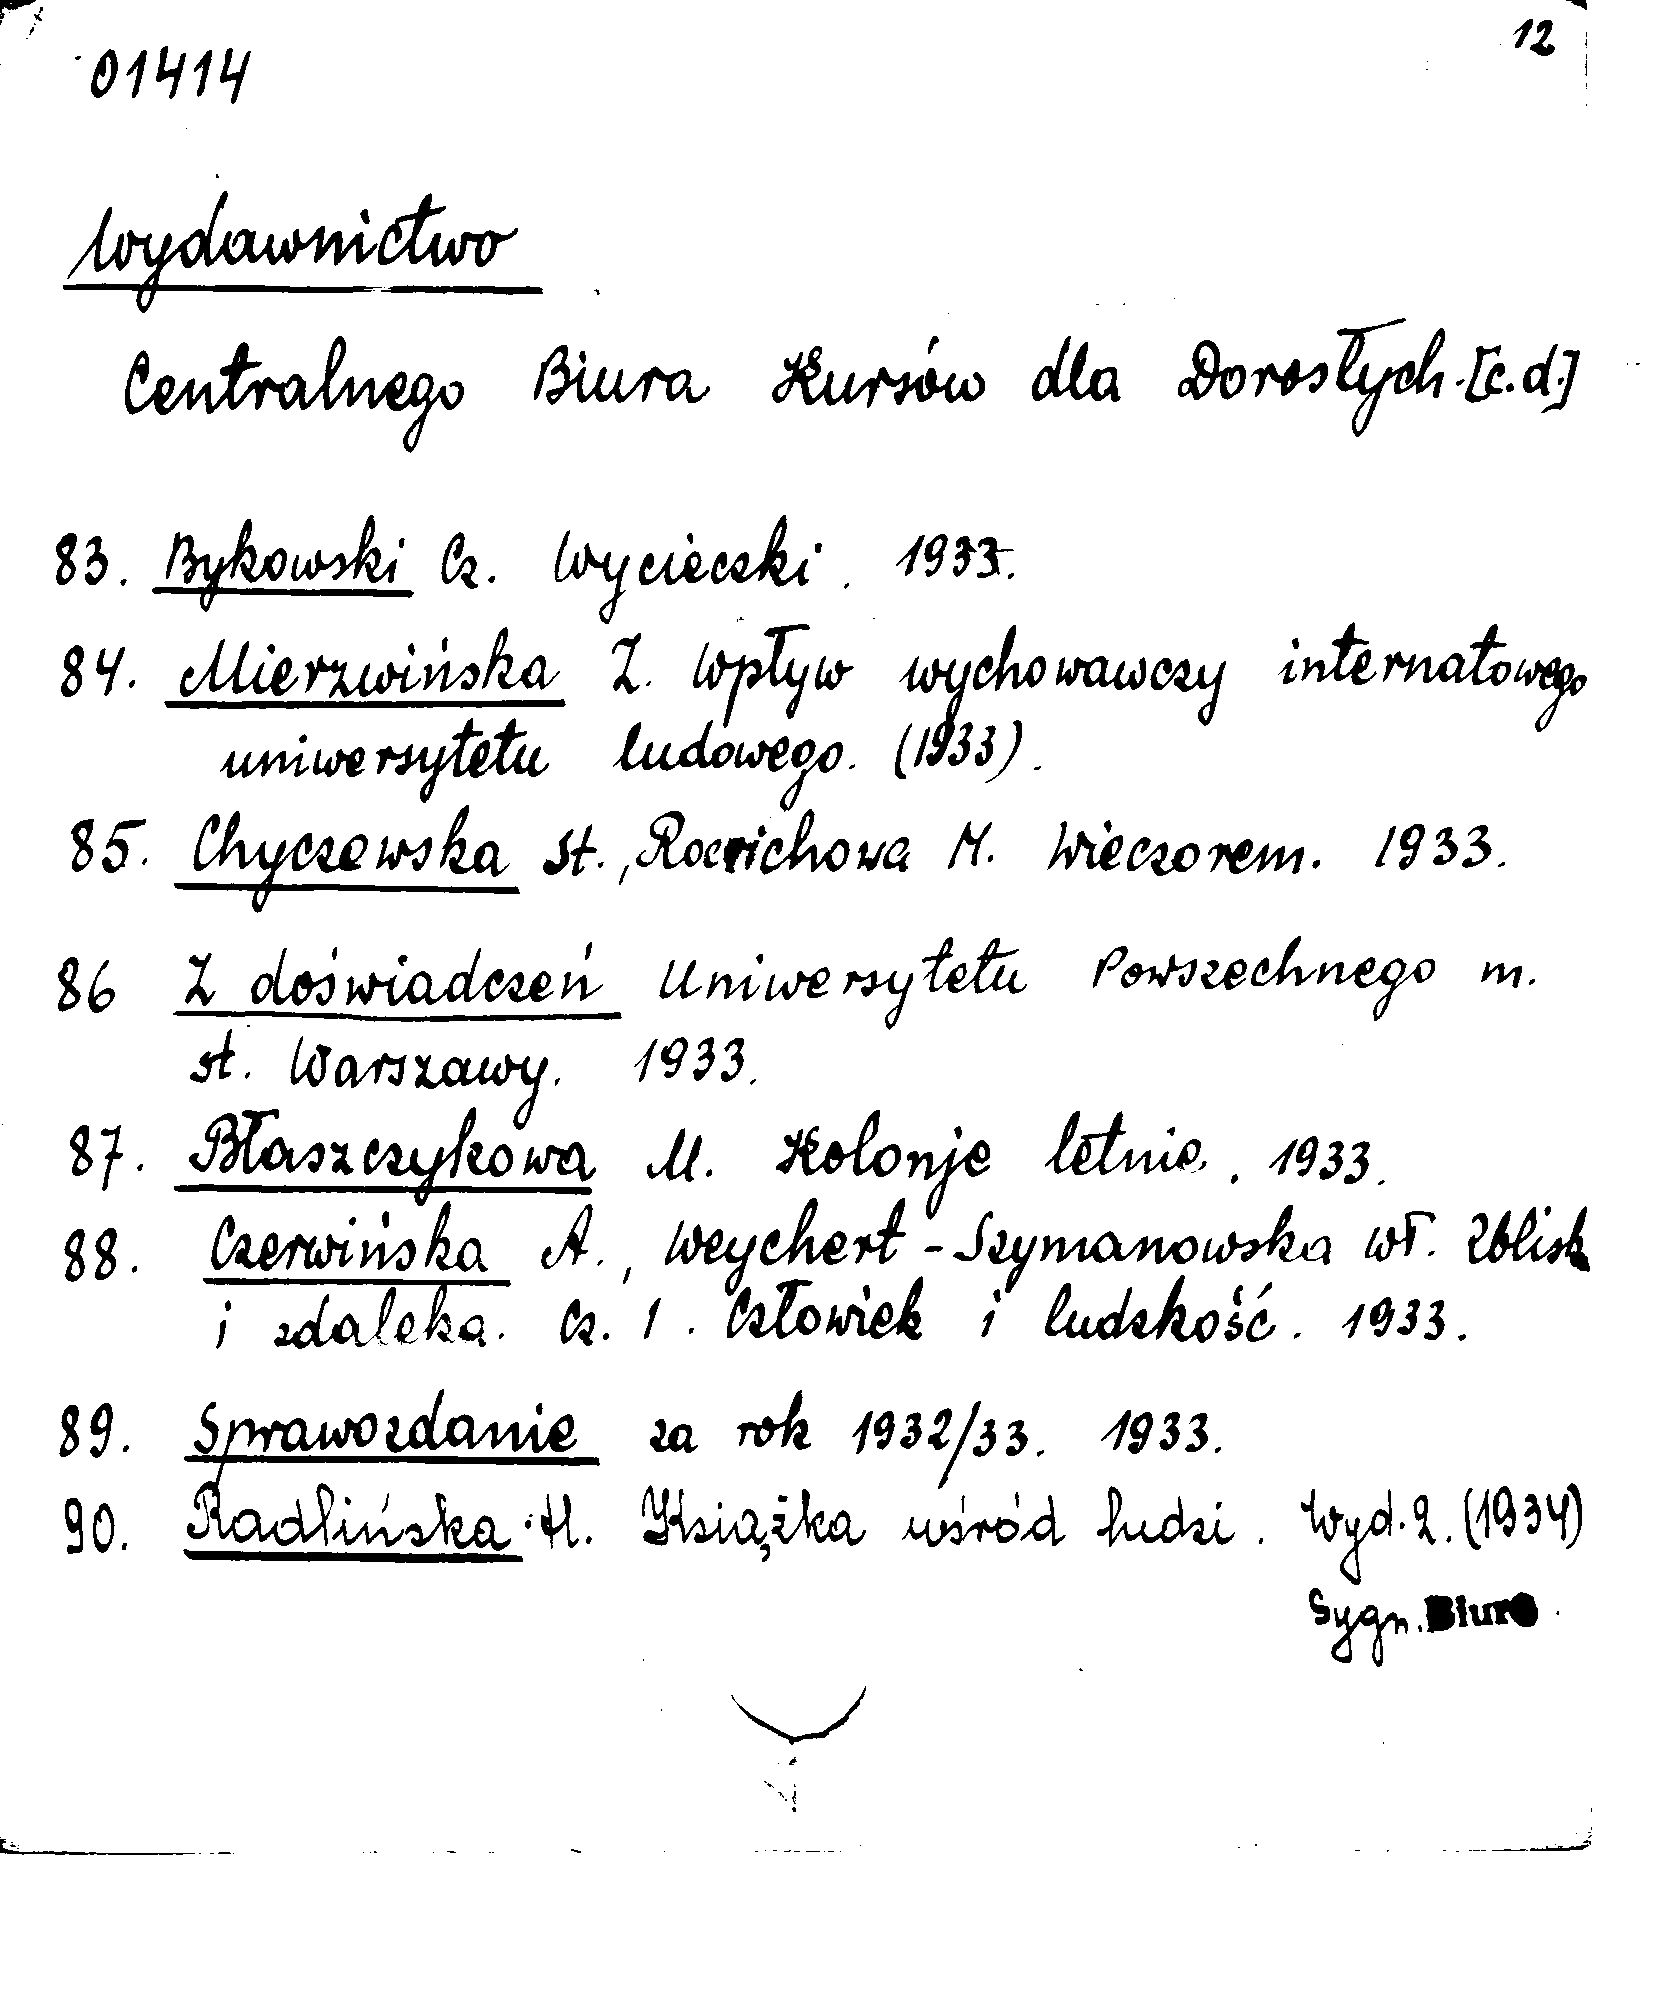 12
01414
Wydawnictwo
Centralnego Biura Kursów dla Dorosłych. [c.d.]
83. Bykowski Cz. Wycieczki. 1933.
84. Mierzwińska Z. Wpływ wychowawczy internatowego
uniwersytetu ludowego. (1933).
85. Chyczewska St., Roerichowa M. Wieczorem. 1933.
86 Z doświadczeń Uniwersytetu Powszechnego m.
st. Warszawy. 1933.
87. Błaszczykowa M. Kolonje letnie. 1933.
88. Czerwińska A., Weychert-Szymanowska Wł. Zblisk
i zdaleka. Cz. 1. Człowiek i ludzkość. 1933.
89. Sprawozdanie za rok 1932/33. 1933.
90. Radlińska H. Książka wśród ludzi. Wyd. 2. (1934)
Sygn. Biuro